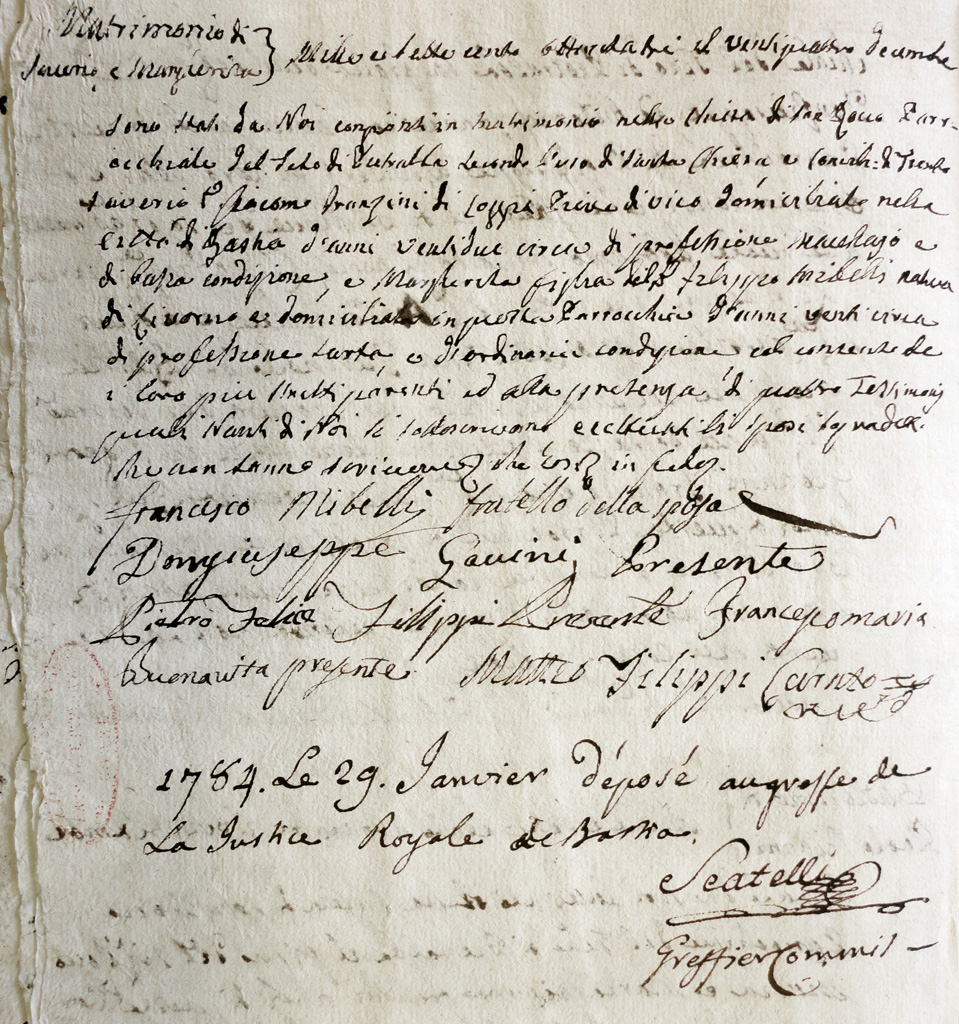 Matrimonio di
Saverio e Margherita } Mille e sette cento ottantatri il ventiquattro decembre
sono stati da Noi congionti in matrimonio nella Chiesa di San Rocco Parr-
occhiale del secondo l'uso di Santa Chiesa e Concil: di Trento
Saverio Giacomo Franzini di Loggi Pieve di vico domiciliato nella
Città di Bastia d'anni ventidue circa di professione e
di bassa condizione, e Margherita figlia del Filippo Mibelli nativa
di Livorno e domiciliata in questa Parrocchia d'anni venti circa
di professione sarta e d'ordinaria condizione col consenso de
i loro più stretti parenti ed alla presenza di quattro Testimonj
quali Nanti di Noi si sottoscrivono eccettuati li sposi
che non sanno scrivere che in fede.
Francesco Mibelli fratello della sposa
Dongiuseppe Gavini Presente
Pietro Felice Filippi Presente Francescomaria
Buonavita presente. Matteo Filippi
1784. Le 29. Janvier déposé au greffe de
La Justice Royale de Bastia.
Seatelli
Greffier Commis